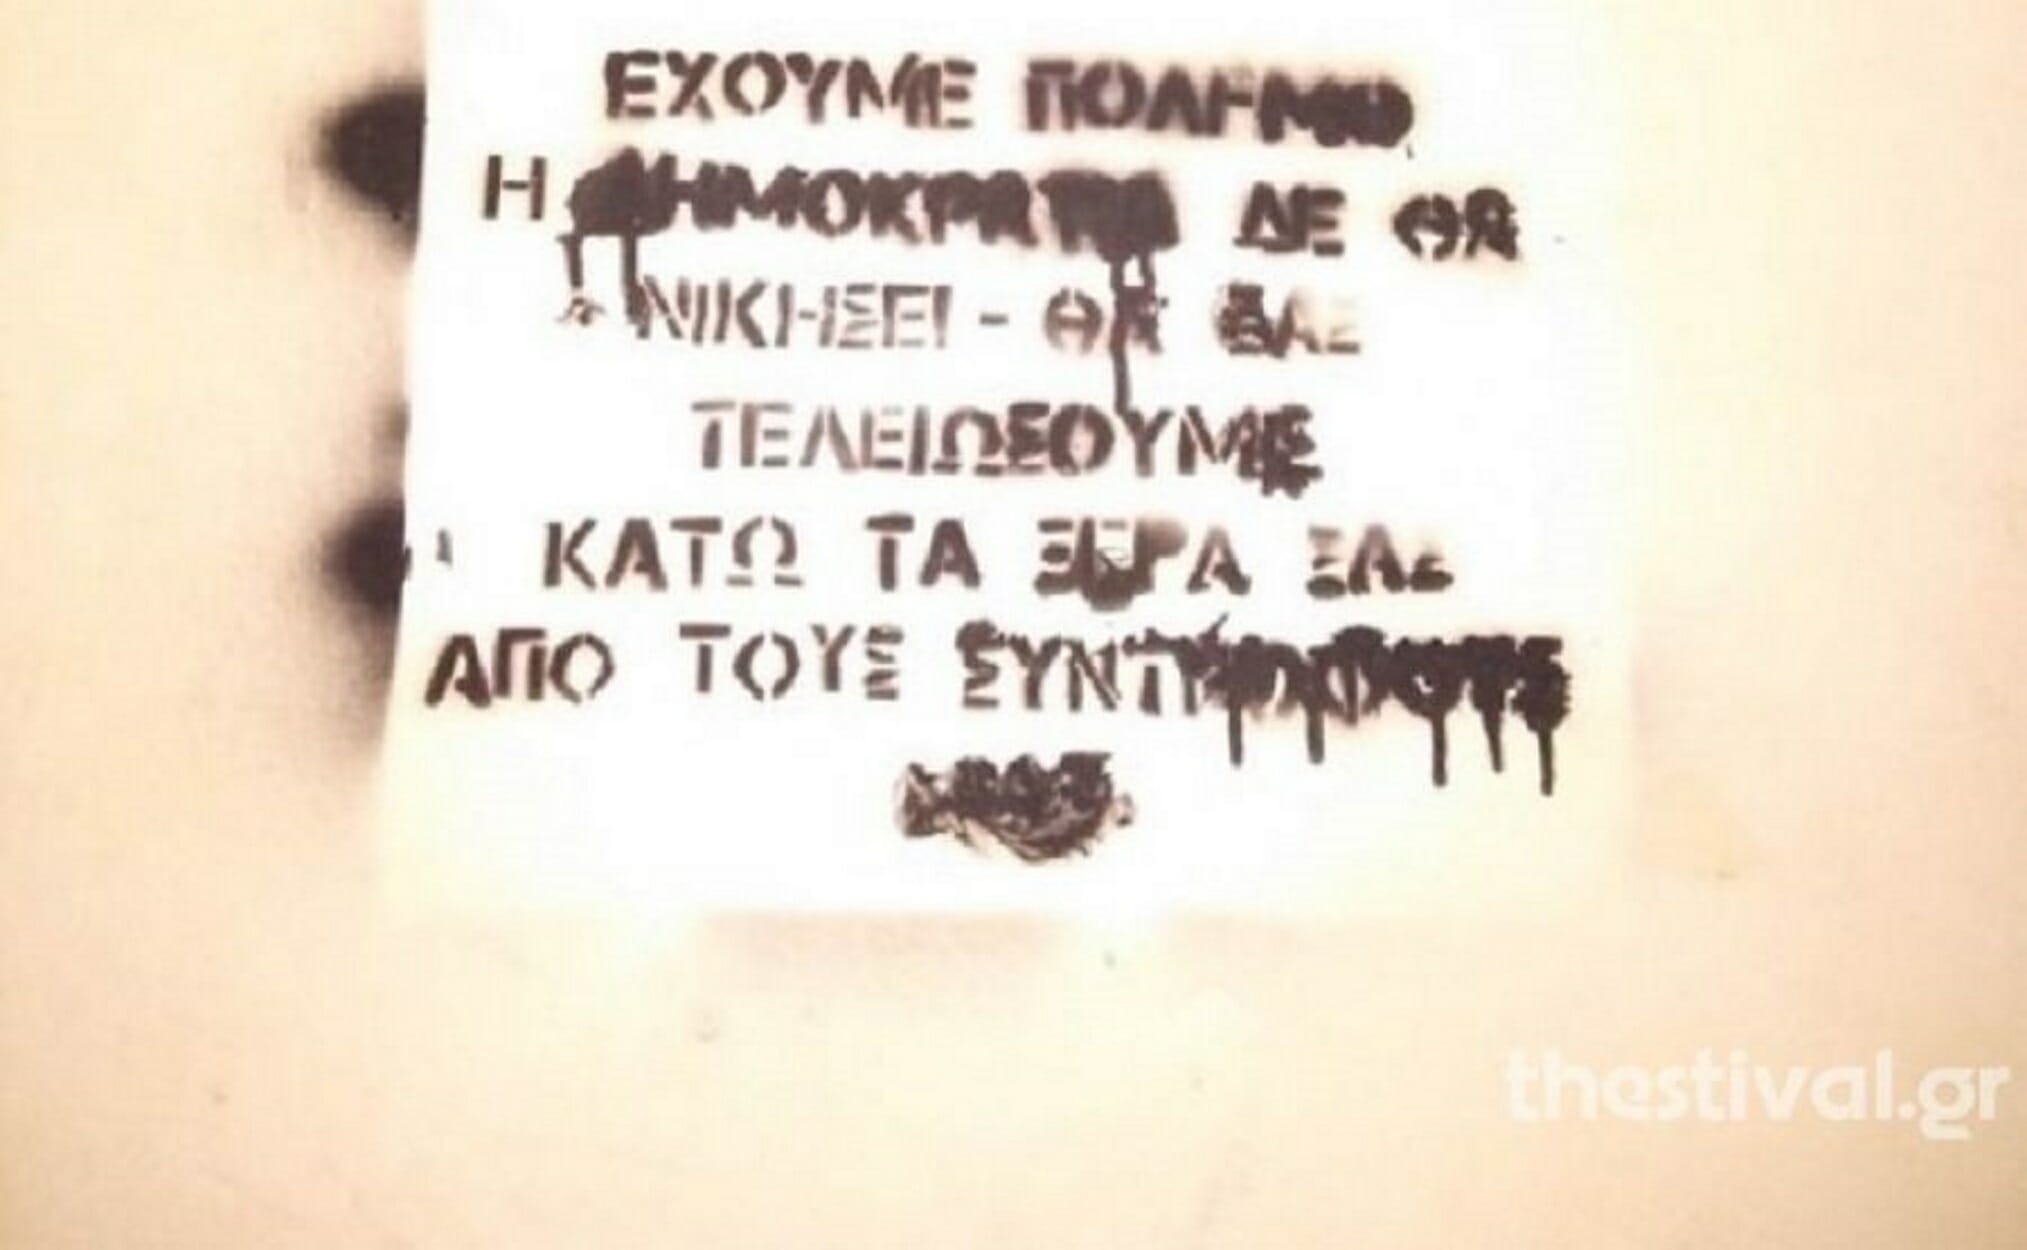 ΕΧΟΥΜΕ ΠΟΛΕΜΟ
Η ΔΗΜΟΚΡΑΤΙΑ ΔΕ ΘΑ
ΝΙΚΗΣΕΙ - ΘΑ ΣΑΣ
ΤΕΛΕΙΩΣΟΥΜΕ
ΚΑΤΩ ΤΑ ΞΕΡΑ ΣΑΣ
ΑΠΟ ΤΟΥΣ ΣΥΝΤΡΟΦΟΥΣ
thestival.gr